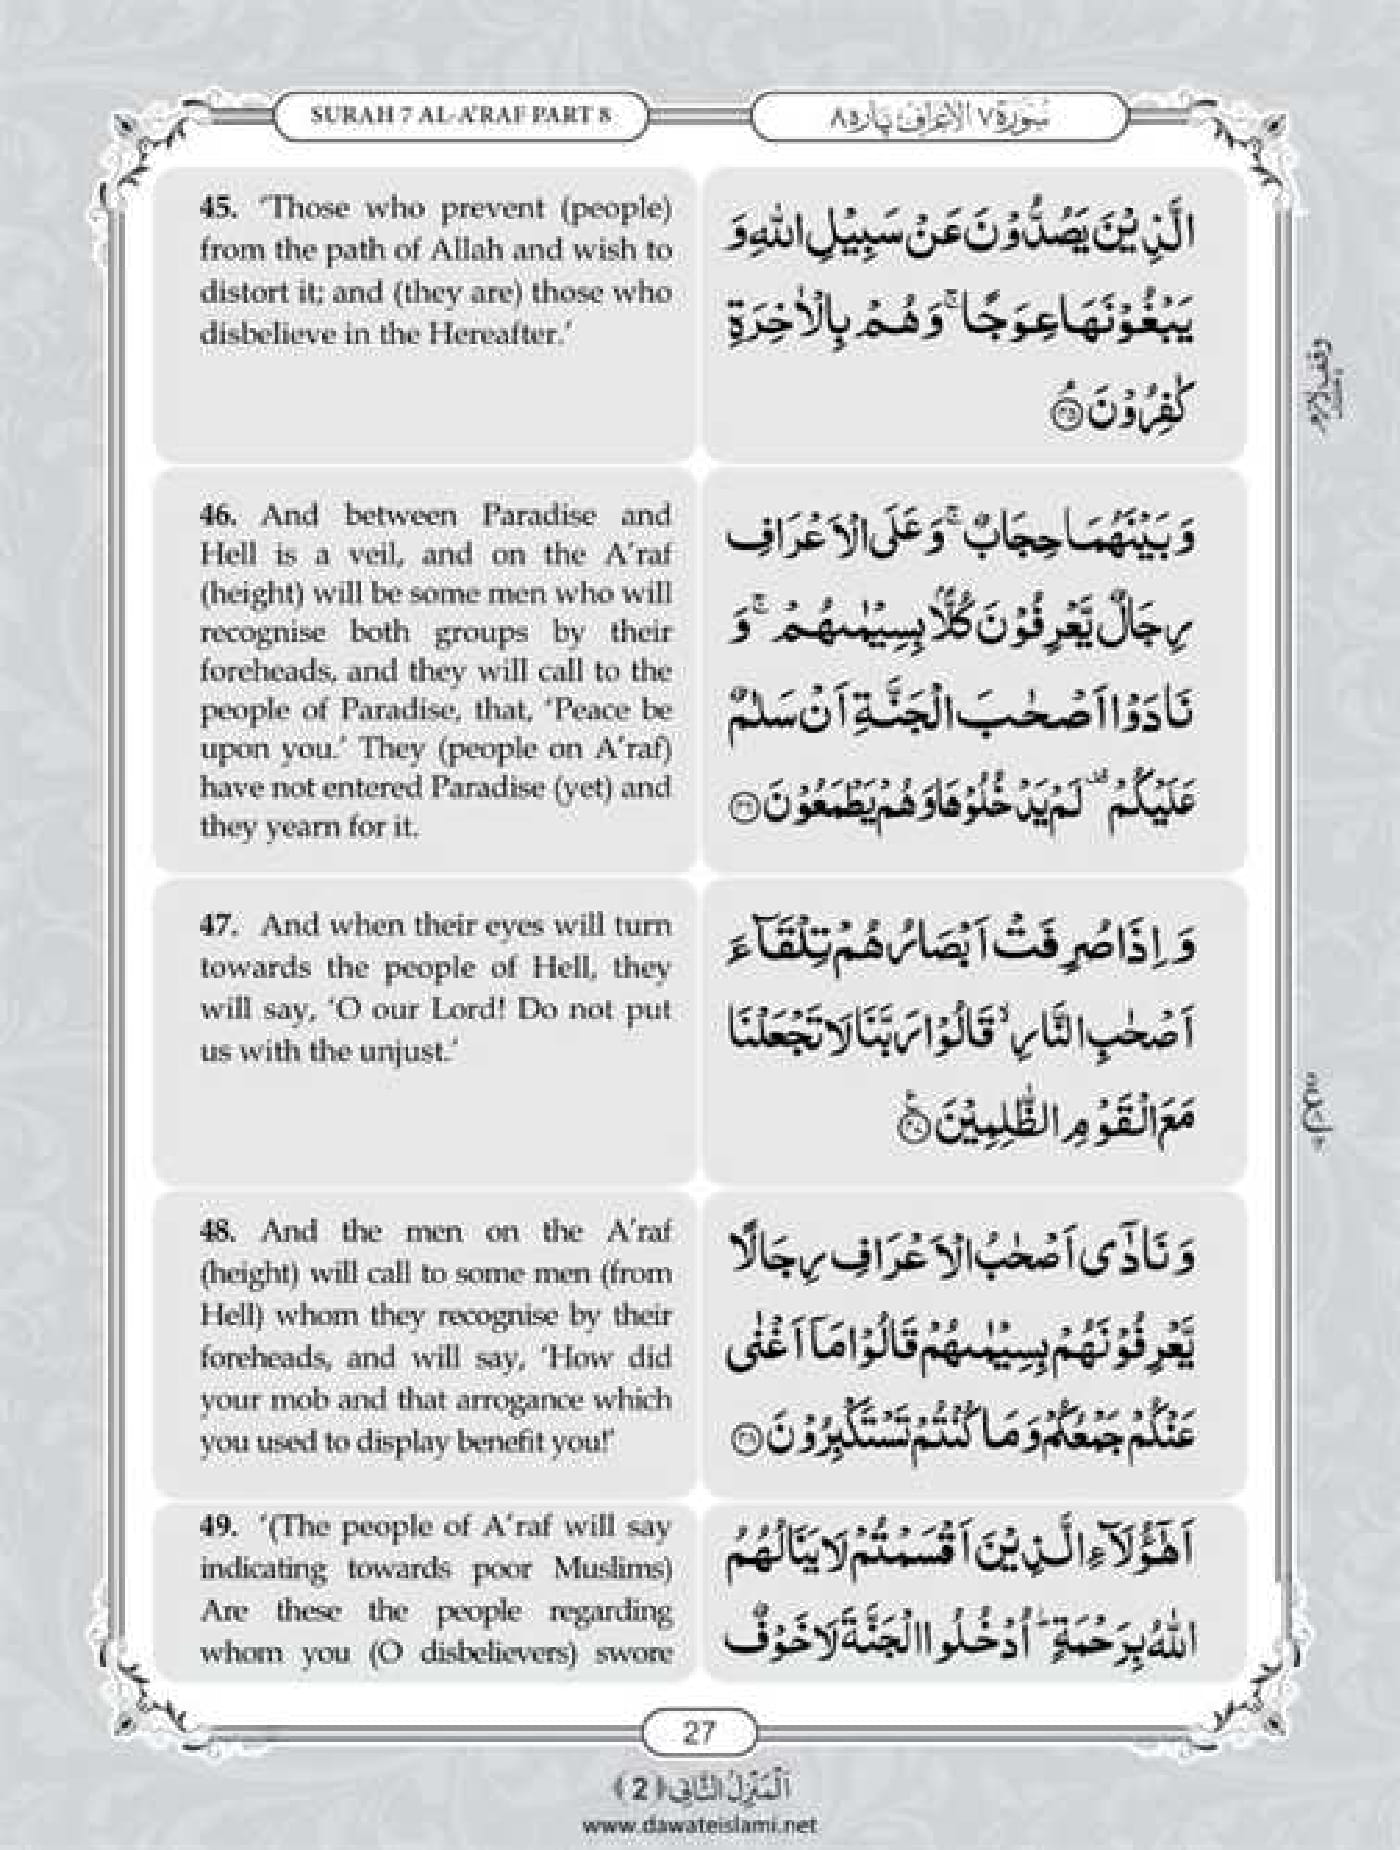 SURAH 7 AL-A'RAF PART 8
سُوْرَةُ ٧ الْاَعْرَاف پارہ ٨
45. 'Those who prevent (people)
from the path of Allah and wish to
distort it; and (they are) those who
disbelieve in the Hereafter.'
الَّذِيْنَ يَصُدُّوْنَ عَنْ سَبِيْلِ اللّٰهِ وَ
يَبْغُوْنَهَا عِوَجًا ۚ وَ هُمْ بِالْاٰخِرَةِ
كٰفِرُوْنَ ۘ﴿۴۵﴾
46. And between Paradise and
Hell is a veil, and on the A'raf
(height) will be some men who will
recognise both groups by their
foreheads, and they will call to the
people of Paradise, that, 'Peace be
upon you.' They (people on A'raf)
have not entered Paradise (yet) and
they yearn for it.
وَ بَيْنَهُمَا حِجَابٌ ۚ وَ عَلَى الْاَعْرَافِ
رِجَالٌ يَّعْرِفُوْنَ كُلًّۢا بِسِيْمٰىهُمْ ۚ وَ
نَادَوْا اَصْحٰبَ الْجَنَّةِ اَنْ سَلٰمٌ
عَلَيْكُمْ ۫ لَمْ يَدْخُلُوْهَا وَ هُمْ يَطْمَعُوْنَ ﴿۴۶﴾
47. And when their eyes will turn
towards the people of Hell, they
will say, 'O our Lord! Do not put
us with the unjust.'
وَ اِذَا صُرِفَتْ اَبْصَارُهُمْ تِلْقَآءَ
اَصْحٰبِ النَّارِ ۙ قَالُوْا رَبَّنَا لَا تَجْعَلْنَا
مَعَ الْقَوْمِ الظّٰلِمِيْنَ ﴿۴۷﴾
48. And the men on the A'raf
(height) will call to some men (from
Hell) whom they recognise by their
foreheads, and will say, 'How did
your mob and that arrogance which
you used to display benefit you!'
وَ نَادٰۤى اَصْحٰبُ الْاَعْرَافِ رِجَالًا
يَّعْرِفُوْنَهُمْ بِسِيْمٰىهُمْ قَالُوْا مَاۤ اَغْنٰى
عَنْكُمْ جَمْعُكُمْ وَ مَا كُنْتُمْ تَسْتَكْبِرُوْنَ ﴿۴۸﴾
49. '(The people of A'raf will say
indicating towards poor Muslims)
Are these the people regarding
whom you (O disbelievers) swore
اَهٰۤؤُلَآءِ الَّذِيْنَ اَقْسَمْتُمْ لَا يَنَالُهُمُ
اللّٰهُ بِرَحْمَةٍ ؕ اُدْخُلُوا الْجَنَّةَ لَا خَوْفٌ
27
اَلْمَنْزِلُ الثَّانِی ﴿2﴾
www.dawateislami.net